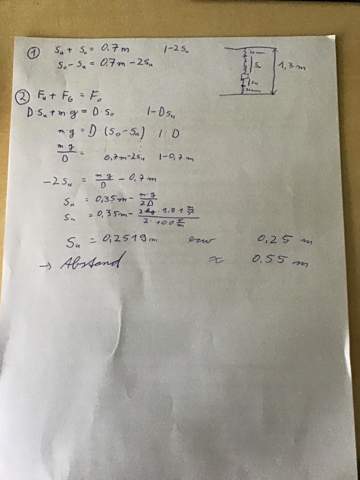 ① Sᵤ + Sₒ = 0,7 m |-2Sᵤ
Sₒ - Sᵤ = 0,7 m - 2Sᵤ
1,3 m
② Fᵤ + F_G = Fₒ
D Sᵤ + m·g = D·Sₒ |-D Sᵤ
m·g = D (Sₒ-Sᵤ) |:D
m·g/D = 0,7m-2Sᵤ |-0,7m
-2Sᵤ = m·g/D - 0,7m
Sᵤ = 0,35m - m·g/2D
Sᵤ = 0,35m -
Sᵤ = 0,2519 m 0,25 m
→ Abstand ≈ 0.55 m